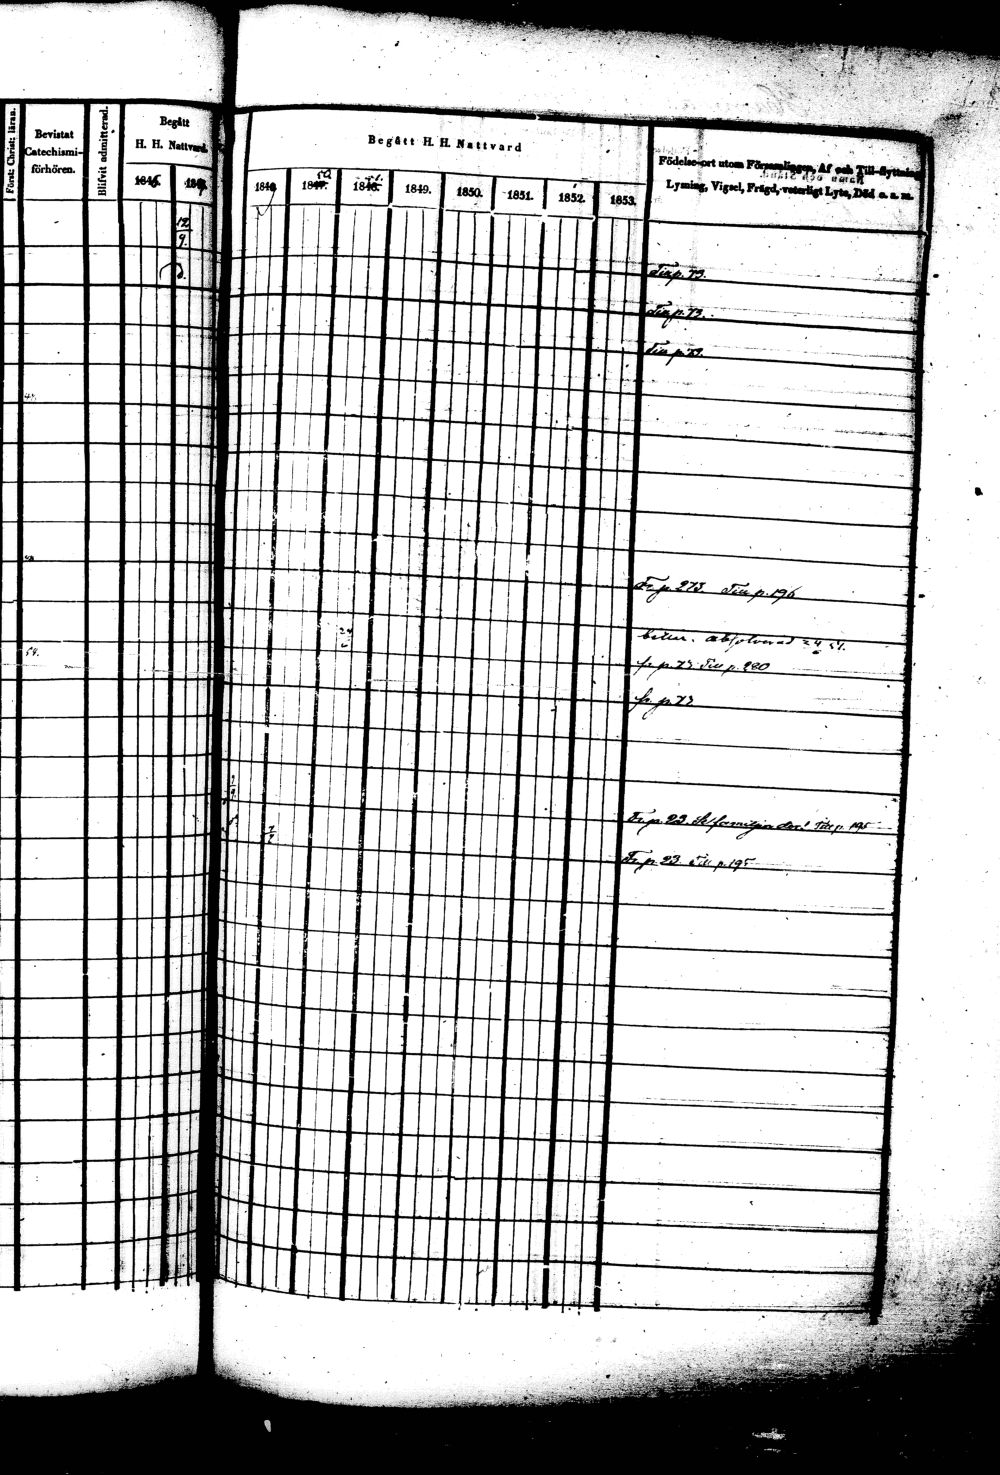 Först: Christ: läran.
Bevistat
Catechismi-
förhören.
Blifvit admitterad.
Begått
H. H. Nattvard.
1846
12
9.
Begått H. H. Nattvard
1847.
1848.
1849.
1850.
1851.
1852.
1853.
Födelse-ort utom Församlingen, Af och Till-flyttning
Lysning, Vigsel, Frägd, veterligt Lyte, Död o. s. m.
Till p. 73.
Till p. 73.
Till p. 73.
Fr. p. 273. Till p. 196
absolverad 24 51.
fr. p. 73 Till p. 280
fr. p. 73
Fr. p. 23. Till p. 195
Fr. p. 23 Till p. 195